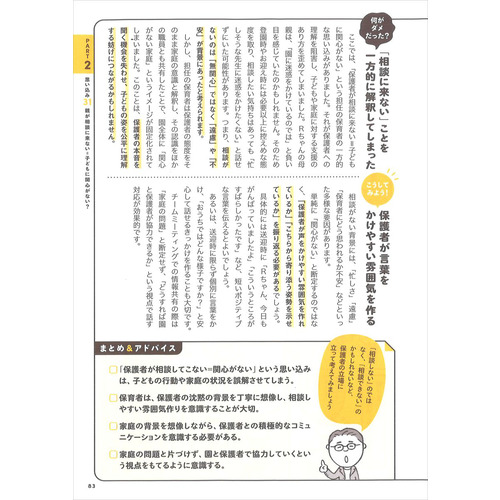 何がダメだった？
「相談に来ない」ことを
一方的に解釈してしまった
ここでは、「保護者が相談に来ない＝子ども
に関心がない」という担任の保育者の一方的
な思い込みがありました。それが保護者への
理解を阻害し、子どもや家庭に対する支援の
あり方を歪めてしまいました。Rちゃんの母
親は、「園に迷惑をかけているのでは」と負い
目を感じていたのかもしれません。そのため
登園時やお迎え時には必要以上に控えめな態
度を取り、相談したい気持ちはあっても、「忙
しそうな先生に迷惑をかけたくない」と話せ
ずにいた可能性があります。つまり、相談が
ないのは「無関心」ではなく「遠慮」や「不
安」が背景にあったと考えられます。
しかし、担任の保育者は保護者の態度をそ
のまま家庭の意識と解釈し、その認識をほか
の職員とも共有したことで、園全体に「関心
がない家庭」というイメージが固定化されて
しまいました。このことは、保護者の本音を
聞く機会を失わせ、子どもの姿を公平に理解
する妨げにつながるかもしれません。
こうしてみよう！
保護者が言葉を
かけやすい雰囲気を作る
相談がない背景には、「忙しさ」「遠慮」
「保育者にどう思われるか不安」などといっ
た多様な要因があります。
単純に「関心がない」と断定するのではな
く、「保護者が声をかけやすい雰囲気を作れ
ているか」「こちらから寄り添う姿勢を示せ
ているか」を振り返る必要があるでしょう。
具体的には送迎時に「Rちゃん、今日も
がんばっていましたよ」「こういうところが
すばらしかったです」など、短いポジティブ
な言葉を伝えるとよいでしょう。
あるいは、送迎時に限らず個別に言葉をか
け、「おうちではどんな様子ですか？」と安
心して話せるきっかけを作ることも大切です。
チームミーティングでの情報共有の際は
「家庭の問題」と断定せず、「どうすれば園
と保護者が協力できるか」という視点で話す
対応が効果的です。
PART2
思い込み31 親が相談に来ない＝子どもに関心がない？
まとめ&アドバイス
「保護者が相談してこない＝関心がない」という思い込み
は、子どもの行動や家庭の状況を誤解させてしまう。
保育者は、保護者の沈黙の背景を丁寧に想像し、相談し
やすい雰囲気作りを意識することが大切。
家庭の背景を想像しながら、保護者との積極的なコミュ
ニケーションを意識する必要がある。
家庭の問題と片づけず、園と保護者で協力していくとい
う視点をもてるように意識する。
「相談しない」のでは
なく、「相談できない」の
かもしれないなど、
保護者の立場に
立って考えてみましょう
83